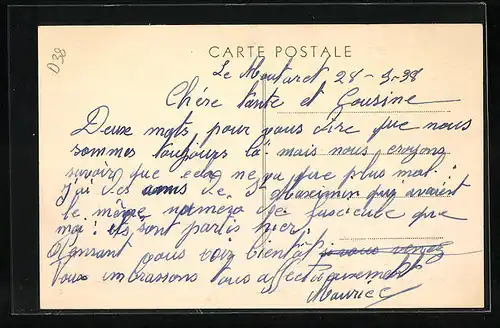 D38
CARTE POSTALE
Le Moutaret 28-3-38
Chère tante et Cousine
Deux mots, pour vous dire que nous
sommes toujours là mais nous croyons
savoir que cela ne va que plus mal :
J'ai des amis de St Maximin qui avaient
le même numéro de fascicule que
moi ils sont partis hier.
Pensant vous voir bientôt si vous venez
Vous embrassons tous affectueusement
Maurice